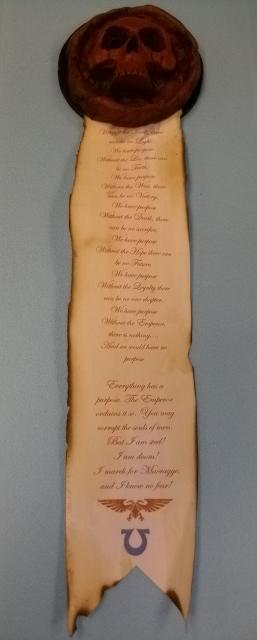 Without the Dark, there
can be no Light.
We have purpose
Without the Lie, there can
be no Truth.
We have purpose
Without the War, there
can be no Victory.
We have purpose
Without the Death, there
can be no sacrifice.
We have purpose
Without the Hope there can
be no Future
We have purpose
Without the Loyalty there
can be no one chapter.
We have purpose
Without the Emperor,
there is nothing....
And we would have no
purpose
Everything has a
purpose. The Emperor
ordains it so. You may
corrupt the souls of men.
But I am steel!
I am doom!
I march for Macragge,
and I know no fear!